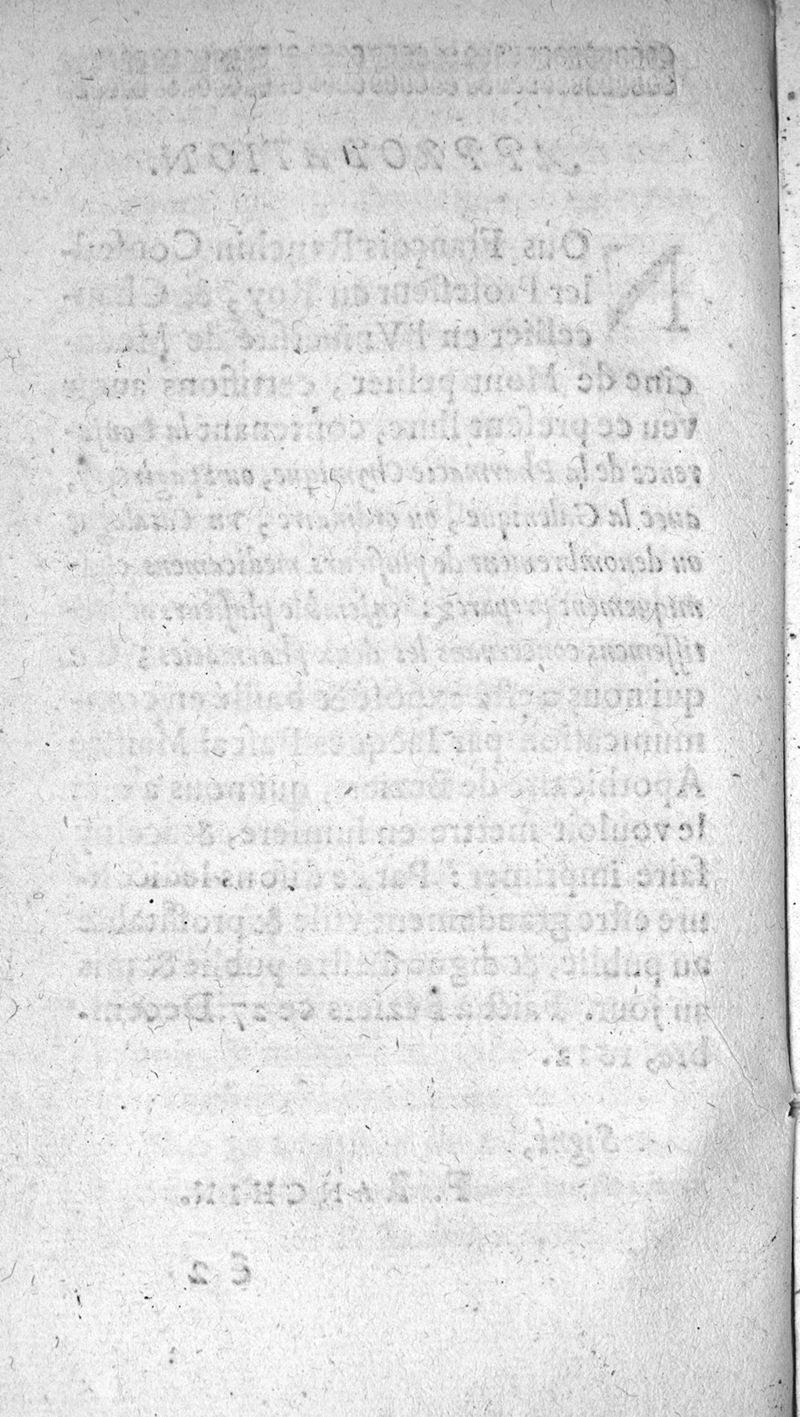 APPROBATION.
NOus François Ranchin Conseil-
ler Professeur du Roy, & Chan-
cellier en l'Vniuersité de Mede-
cine de Montpellier, certifions auoir
veu ce present liure, contenant la Confe-
rence de la Pharmacie Chymique, ou
auec la Galenique, ou ordinaire, vn Catalogue
ou denombrement de plusieurs medicamens chy-
miquement preparez: ensemble plusieurs
tissemens concernans les deux pharmacies; &c.
qui nous a esté exposé & baillé en com-
munication par Iacques Pascal Maistre
Apothicaire de Beziers, qui nous a
le vouloit mettre en lumiere, & iceluy
faire imprimer: Par ce disons ledict li-
ure estre grandement vtile & proffitable
au public, & digne d'estre publié & mis
au jour. Faict à Beziers ce 27. Decem-
bre, 1612.
Signé,
F. RANCHIN.
é 2